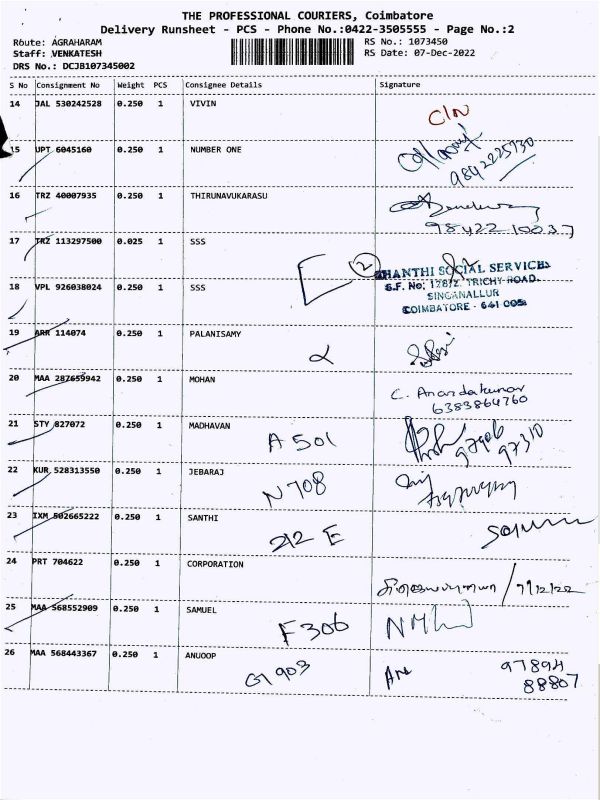 THE PROFESSIONAL COURIERS, Coimbatore
Delivery Runsheet - PCS - Phone No.:0422-3505555 - Page No.:2
Route: AGRAHARAM RS No.: 1073450
Staff: VENKATESH RS Date: 07-Dec-2022
DRS No.: DCJB107345002
S No Consignment No Weight PCS Consignee Details Signature
14 JAL 530242528 0.250 1 VIVIN
15 UPT 6045160 0.250 1 NUMBER ONE
9842225730
16 TRZ 40007935 0.250 1 THIRUNAVUKARASU
9842210037
17 TRZ 113297500 0.025 1 SSS
2
SHANTHI SOCIAL SERVICES
18 VPL 926038024 0.250 1 SSS
S.F. No. 128/2, TRICHY ROAD.
SINGANALLUR
COIMBATORE - 641 005
19 ARR 114074 0.250 1 PALANISAMY
20 MAA 287659942 0.250 1 MOHAN
C. Anandakumar
6383864760
21 STY 827072 0.250 1 MADHAVAN
A 501
97906
97310
22 KUR 528313550 0.250 1 JEBARAJ
N 708
23 IXM 502665222 0.250 1 SANTHI
212 E
24 PRT 704622 0.250 1 CORPORATION
7/12/22
25 MAA 568552909 0.250 1 SAMUEL
F 306
26 MAA 568443367 0.250 1 ANUOOP
G 903
97894
88807